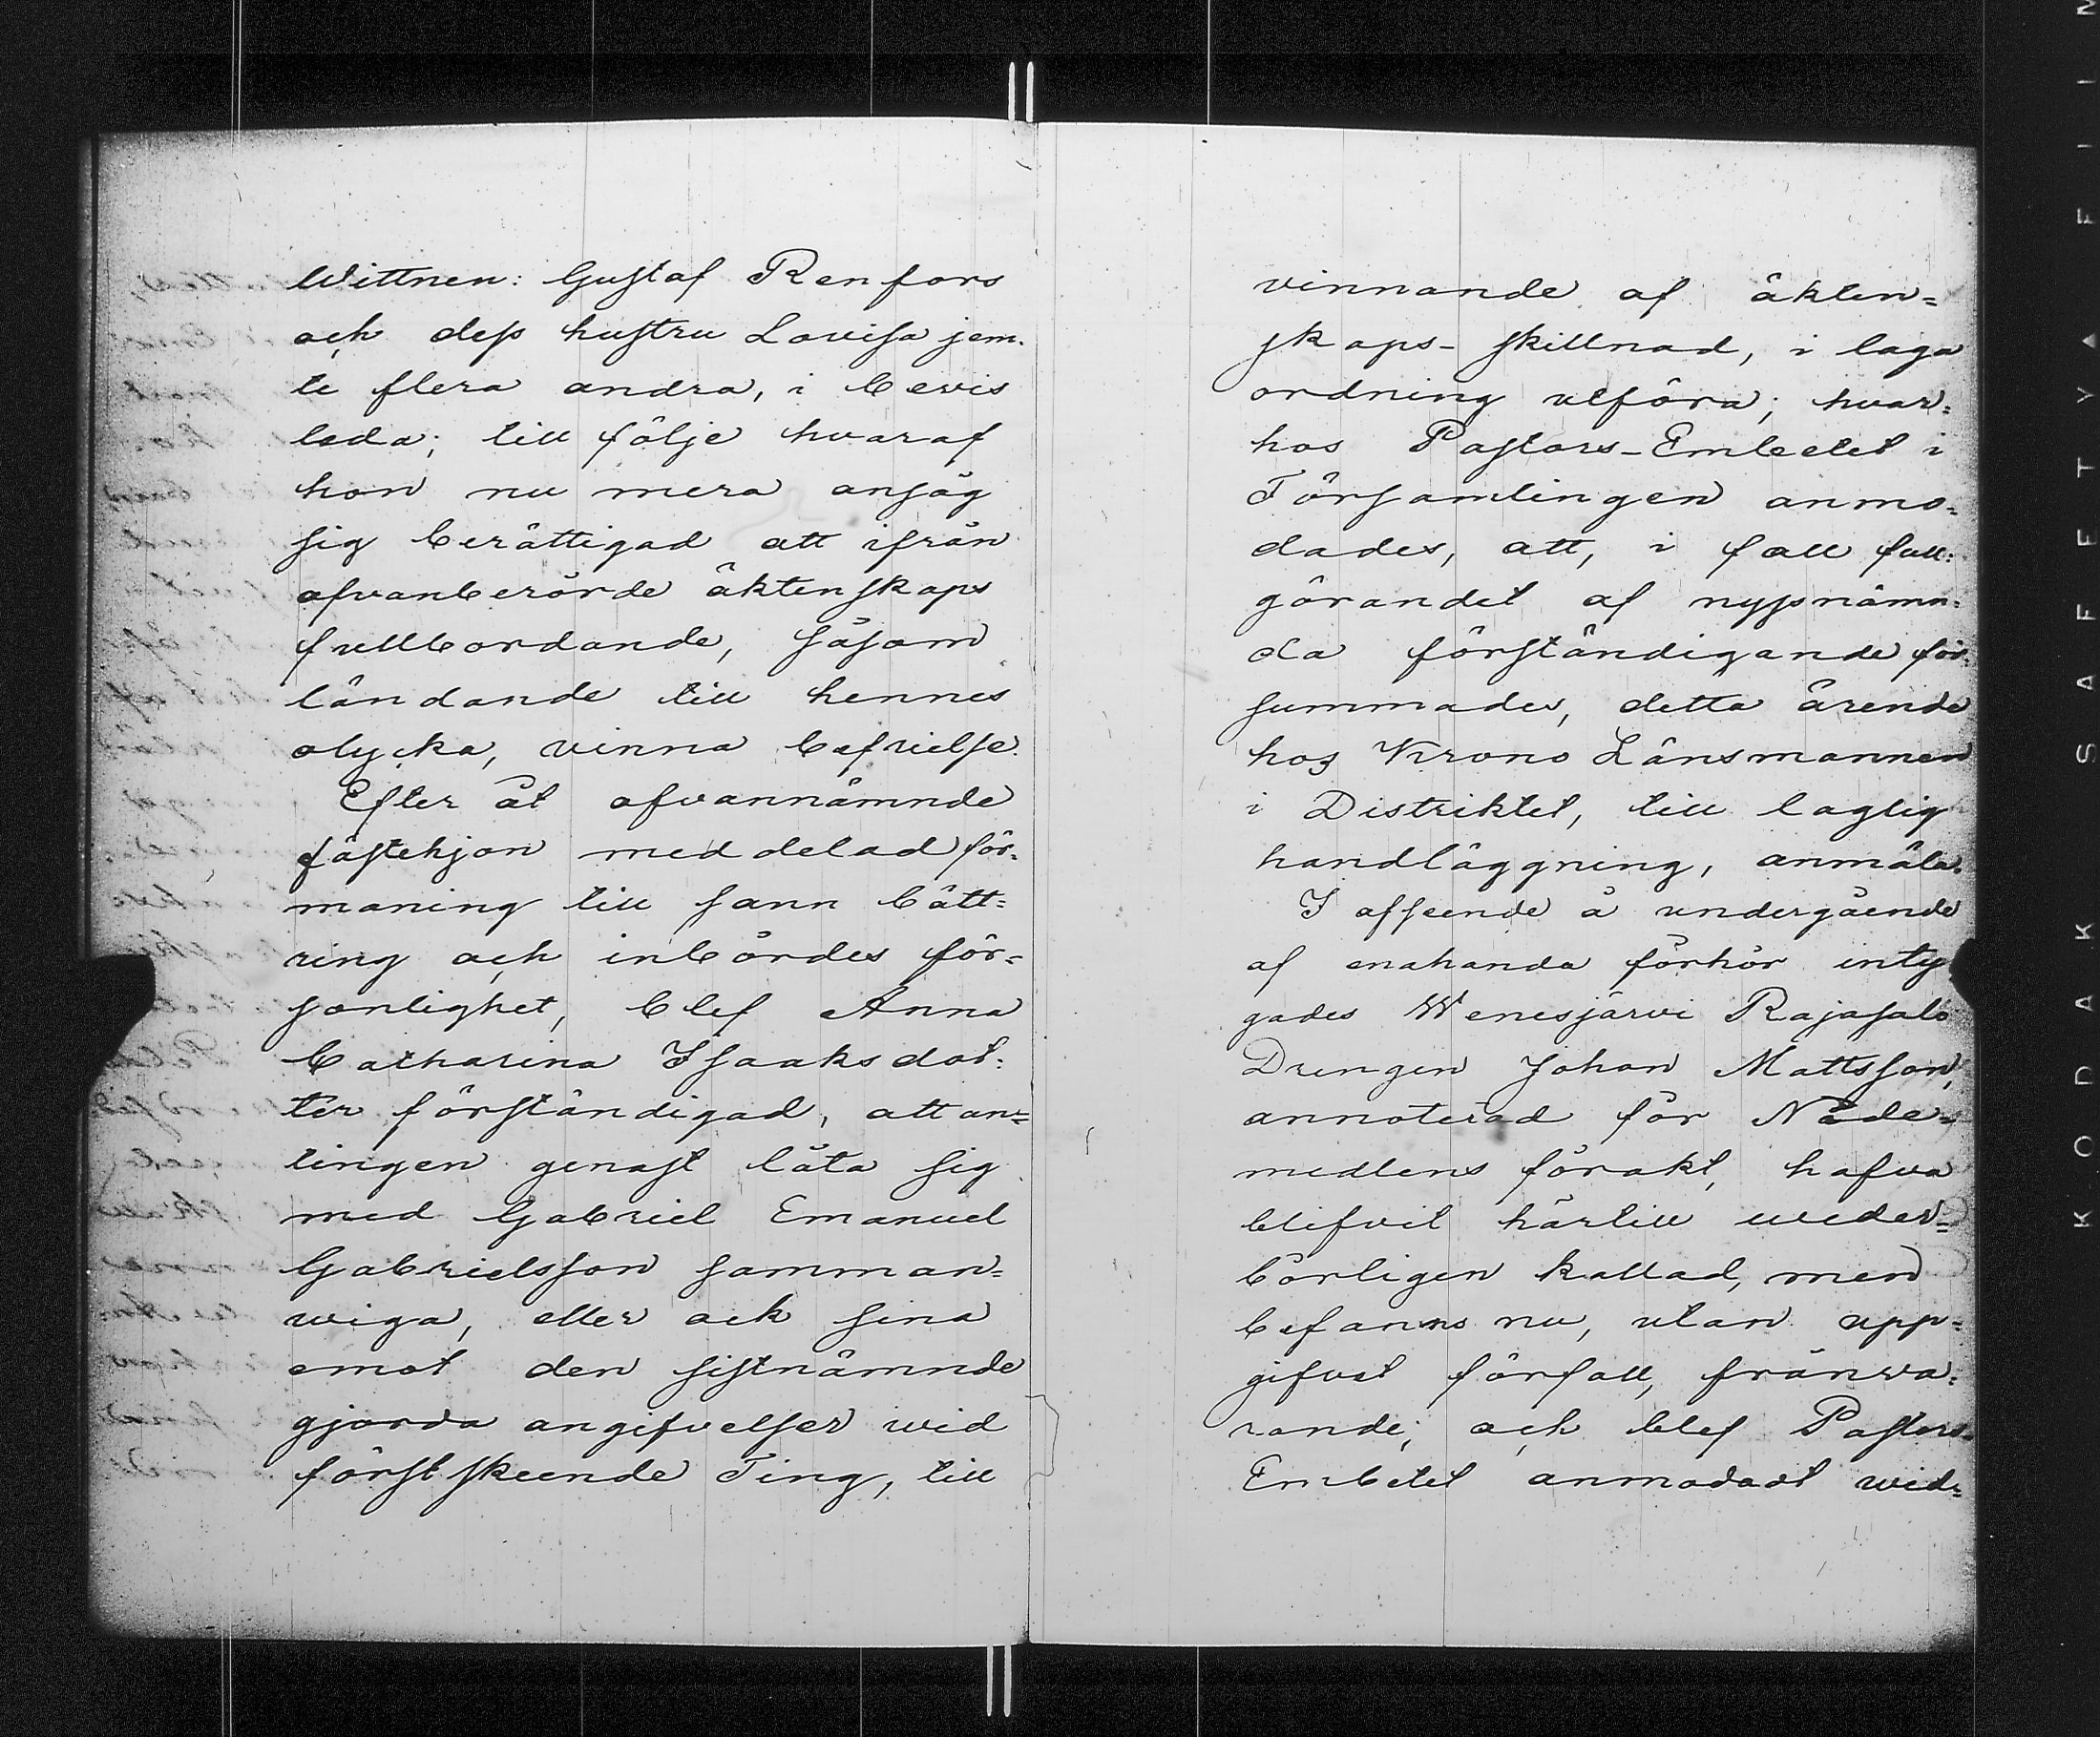 Wittnen: Gustaf Renfors
och dess hustru Lovisa jem-
te flera andra, i bevis
leda; till följe hvaraf
hon nu mera ansåg
sig berättigad att ifrån
ofvanberörde äktenskaps
fullbordande, såsom
ländande till hennes
olycka, vinna befrielse.
Efter åt ofvannämnde
fästehjon meddelad för-
maning till sann bätt=
ring och inbördes för=
sonlighet, blef Anna
Catharina Isaaksdot=
ter förständigad, att an=
tingen genast låta sig
med Gabriel Emanuel
Gabrielsson samman=
wiga, eller ock sina
emot den sistnämnde
gjorda angifvelser wid
förstskeende Ting, till
vinnande af äkten=
skaps-skillnad, i laga
ordning utföra; hvar=
hos Pastors-Embetet i
Församlingen anmo=
dades, att, i fall full=
görandet af nyssnämn=
da förständigande för=
summades, detta ärende
hos Krono Länsmannen
i Distriktet, till laglig
handläggning, anmäla.
I afseende å undergående
af enahanda förhör inty
gades Wenesjärvi Rajasalo
Drengen Johan Mattsson,
annoterad för Nåde=
medlens förakt, hafva
blifvit härtill weder=
börligen kallad, men
befanns nu, utan upp=
gifvet förfall, frånva=
rande; och blef Pastors-
Embetet anmodadt wid=
KODAK SAFETY FILM